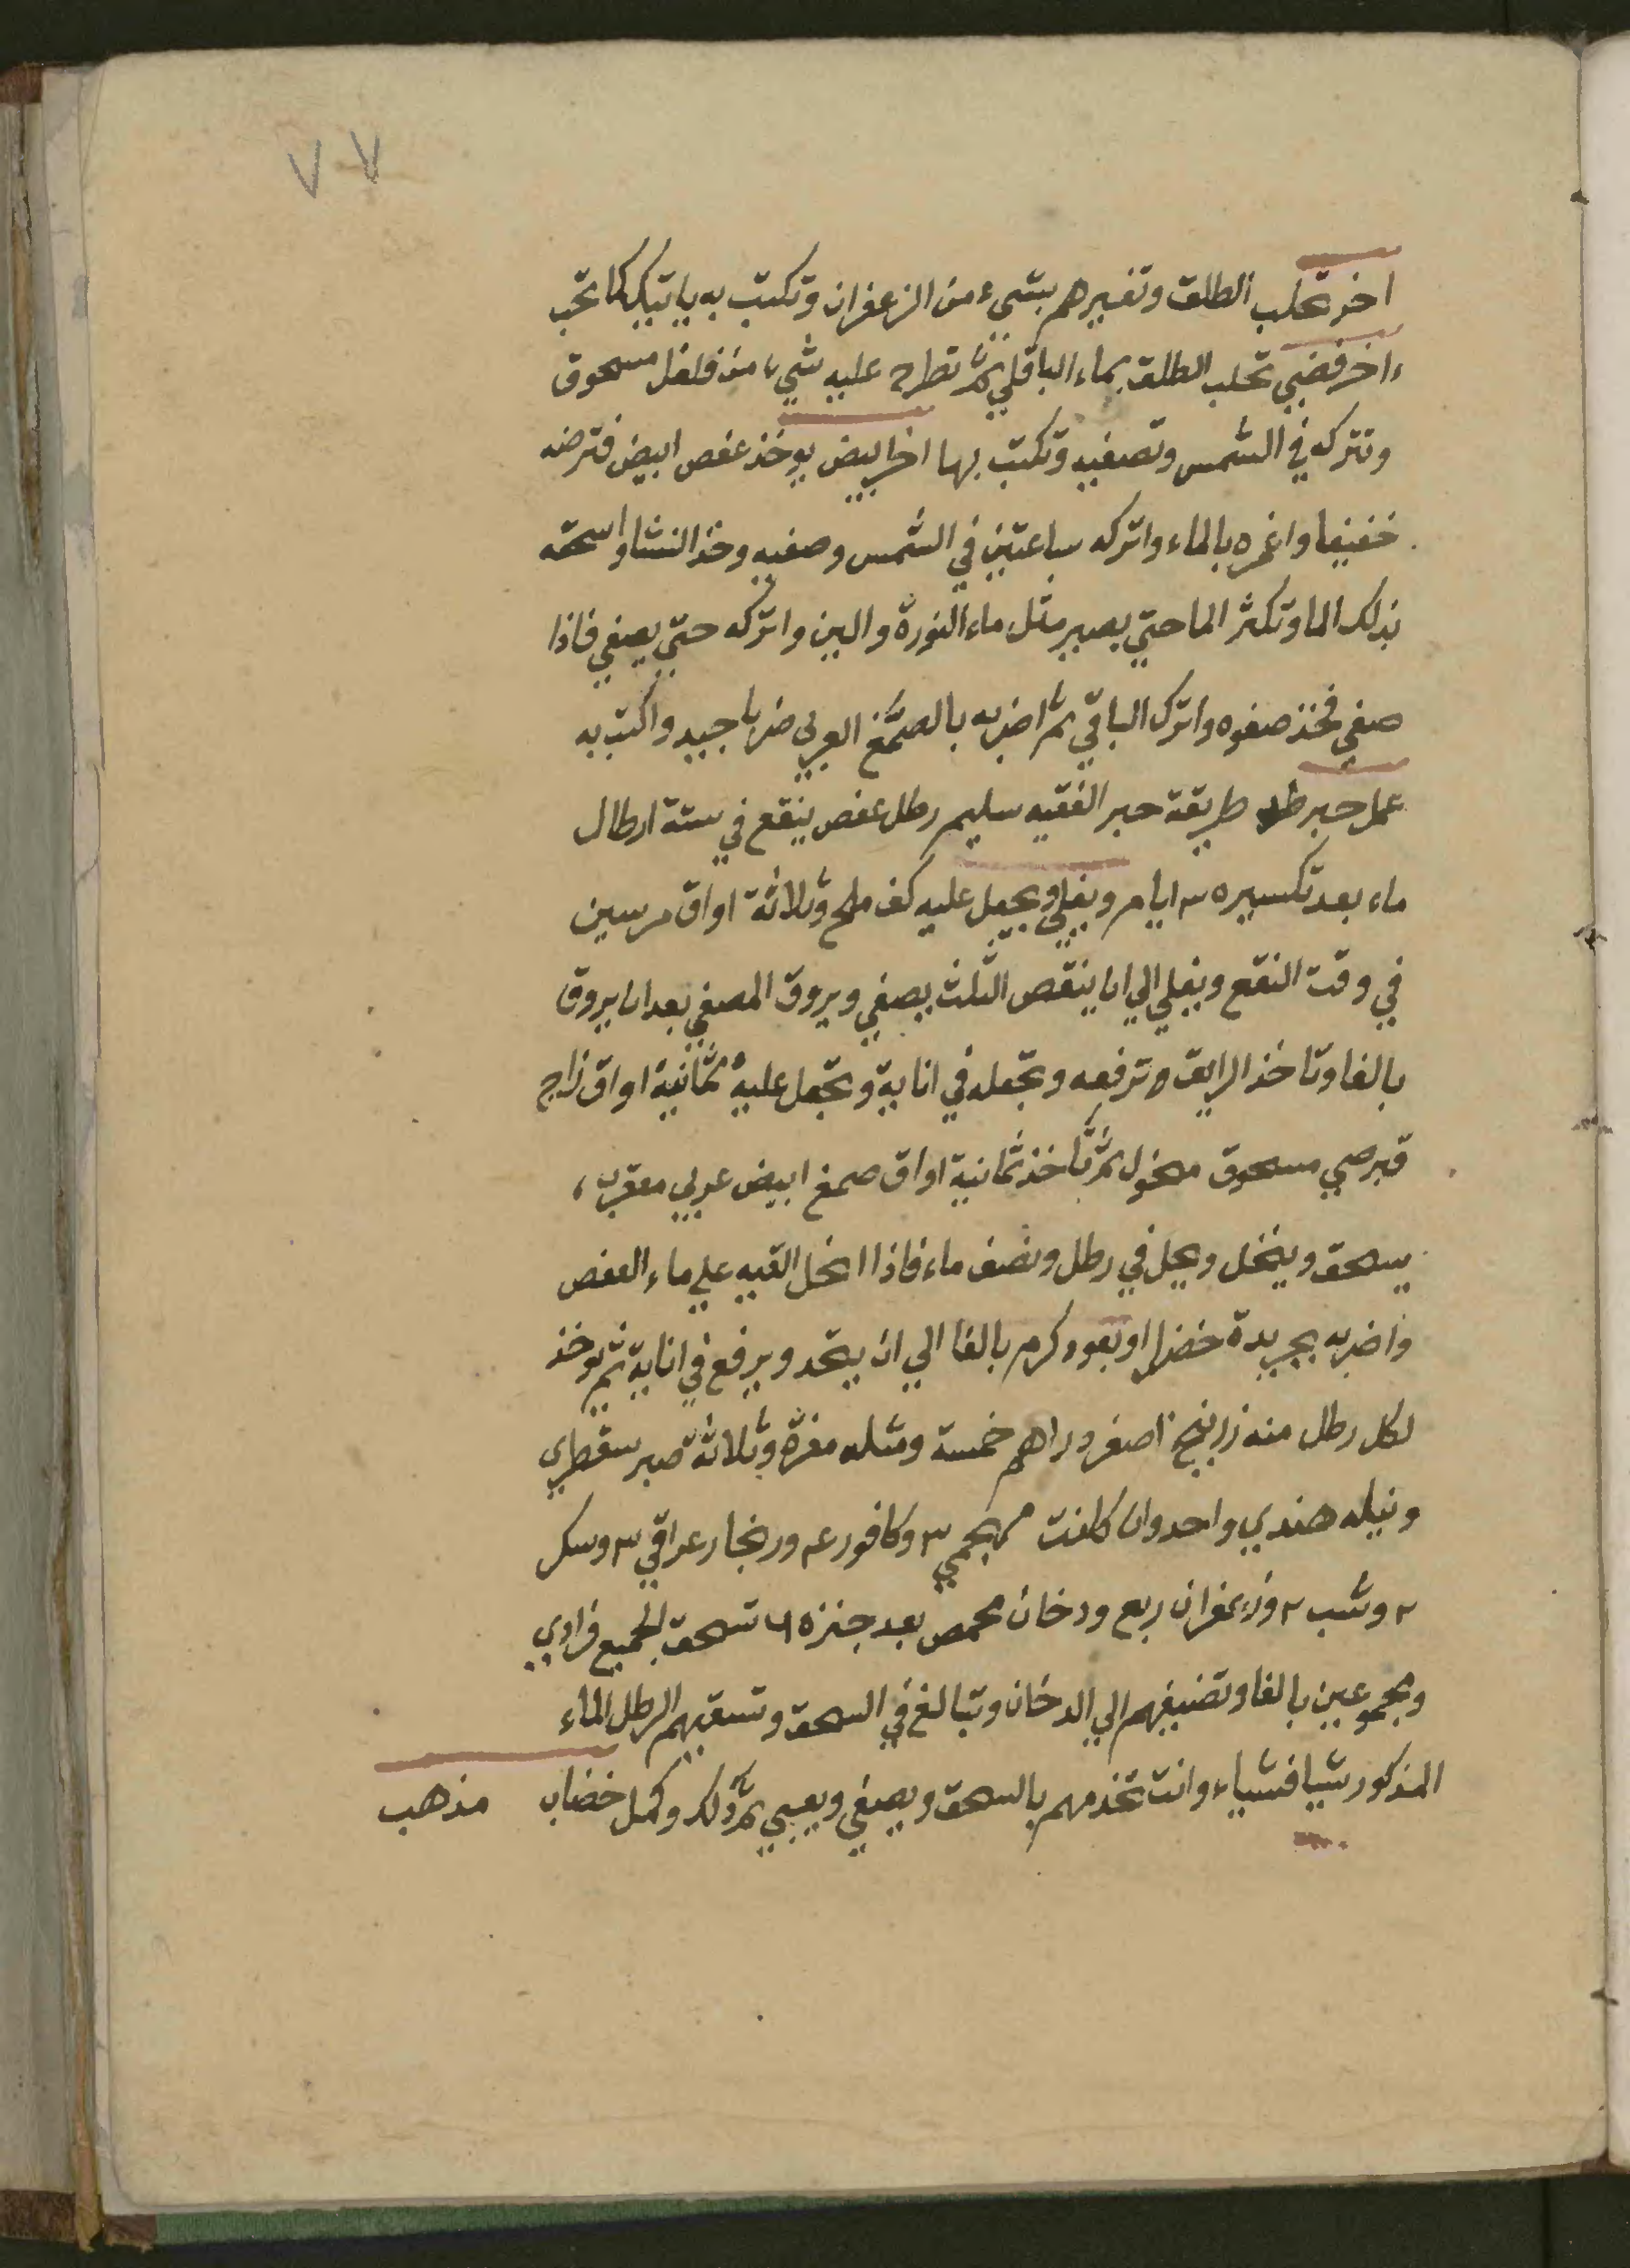 ٧٧
اخر تحلب الطلق وتغيرهم بشيء من الزعفران وتكتب به ياتيك كما تحب
اخر فضي تحلب الطلق بماء الباقلي ثم تطرح عليه شيء من فلفل مسحوق
وتتركه في الشمس وتصفيه وتكتب بها اخر ابيض يوخذ عفص ابيض فترضه
خفيفا واغمره بالماء واتركه ساعتين في الشمس وصفيه وخذ النشا واسحقه
بذلك الما وتكثر الما حتي يصير مثل ماء النورة والبن واتركه حتي يصفي فاذا
صفي فخذ صفوه واترك الباقي ثم اضربه بالصمغ العربي ضربا جيد واكتب به
عمل حبر طريقة حبر الفقيه سليم رطل عفص ينقع في ستة ارطال
ماء بعد تكسيره ٣ ايام ويغلي ويجعل عليه كف ملح وثلاثة اواق مرسين
في وقت النقع ويغلي الي ان ينقص الثلث يصفي ويروق المصفي بعد ان يروق
بالغا وتاخذ الرايق ترفعه وتجعله في اناية وتجعل عليه ثمانية اواق زاج
قبرصي مسحوق منخول ثم تاخذ ثمانية اواق صمغ ابيض عربي معقرب
يسحق وينخل ويحل في رطل ونصف ماء فاذا انحل القيه علي ماء العفص
واضربه بجريدة خضرا او بعود كرم بالغا الي ان يتحد ويرفع في اناية ثم يوخذ
لكل رطل منه زرنيخ اصفر دراهم خمسة ومثله مغرة وثلاثة صبر سقطري
ونيله هندي واحد وان كانت عجمي ٣ وكافور ٤ وزنجار عراقي ٣ وسكر
٢ وشب ٢ وزعفران ربع ودخان محمص بعد جنزه ٦ تسحق الجميع فرادي
ومجموعين بالغا وتضيفهم الي الدخان وتبالغ في السحق وتسقيهم الرطل الماء
المذكور شيا فشياء وانت تخدمهم بالسحق ويصفي ويعبي ثم ذلك وكمل خضاب مذهب